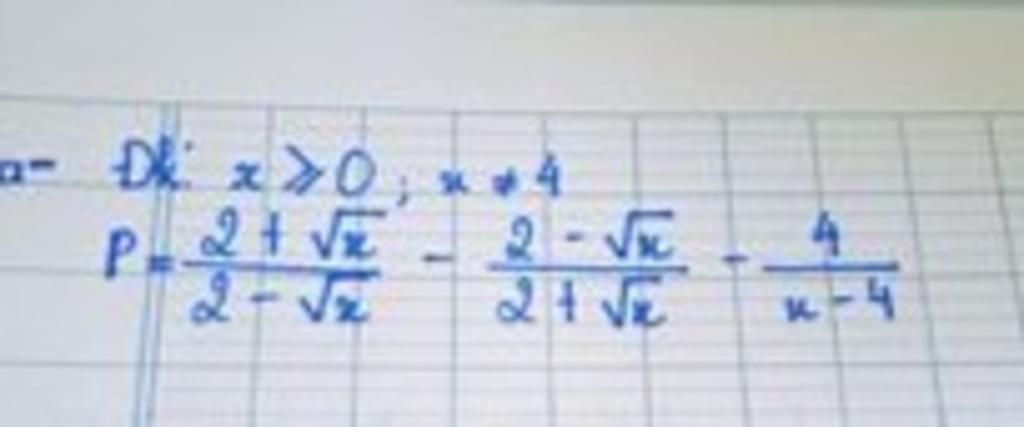 a- Đk: x ⩾ 0 ; x ≠ 4
P = \frac{2 + \sqrt{x}}{2 - \sqrt{x}} - \frac{2 - \sqrt{x}}{2 + \sqrt{x}} - \frac{4}{x - 4}